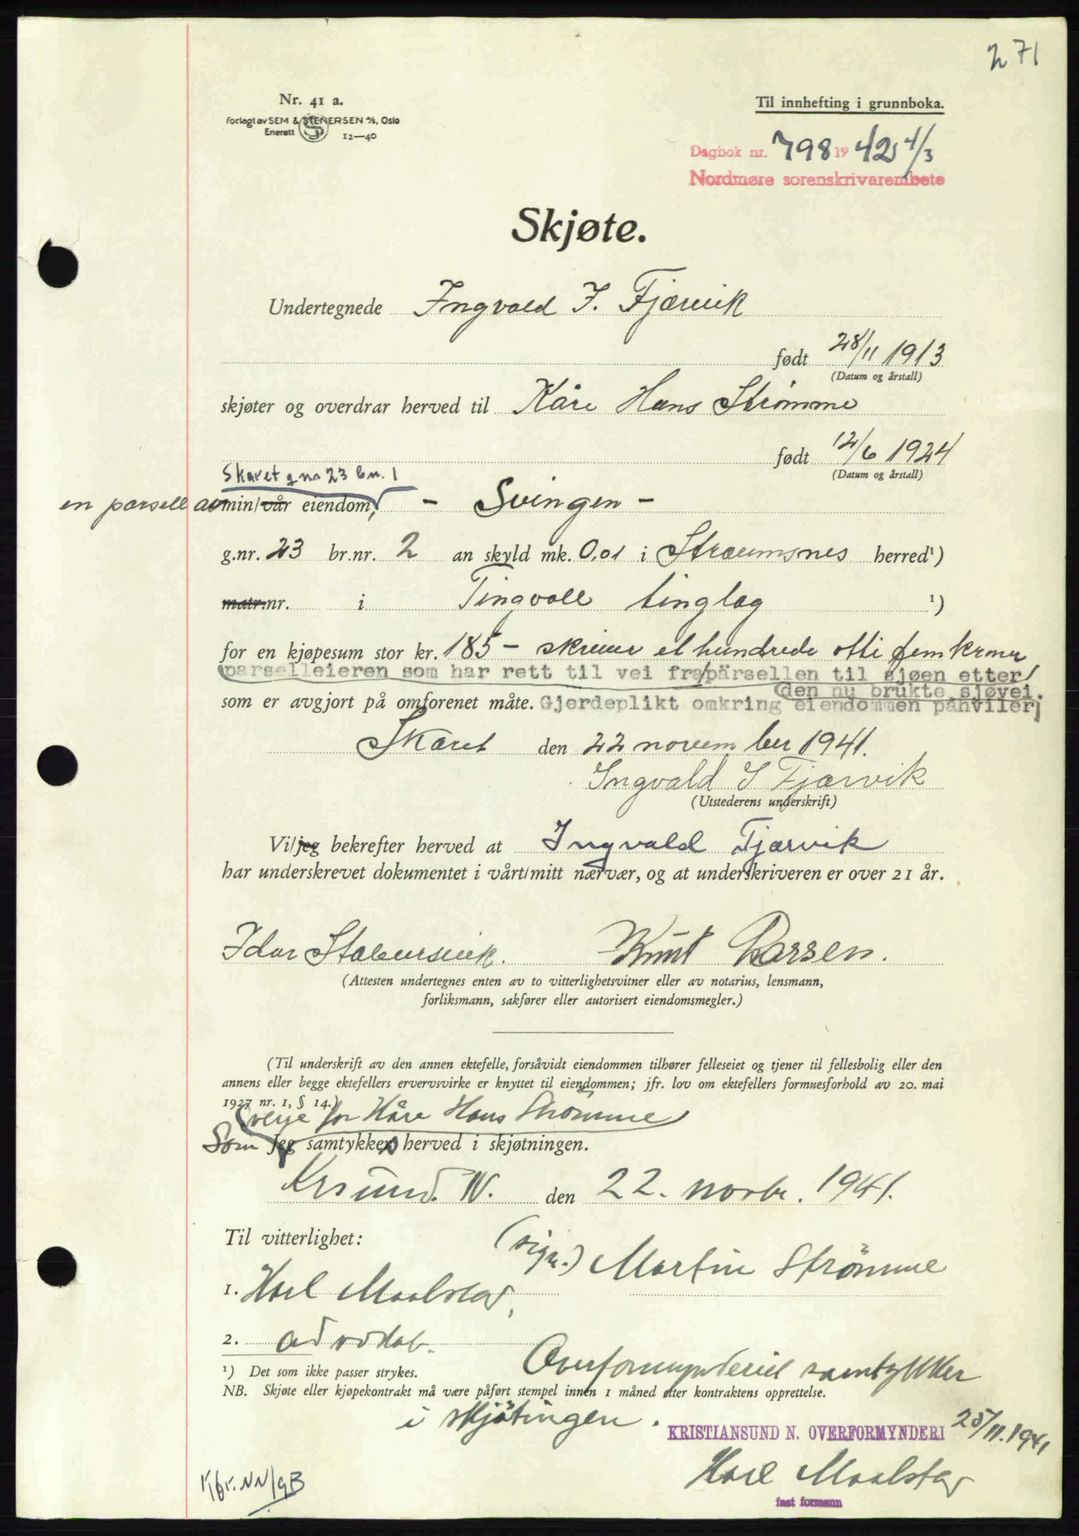 271
Nr. 41 a.
Forlagt av SEM & STENERSEN A/S, Oslo
Enerett 12—40
Til innhefting i grunnboka.
Dagbok nr. 798 1942 4/3
Nordmøre sorenskrivarembete
Skjøte.
Undertegnede Ingvald I. Fjærvik
født 28/11 1913
(Datum og årstall)
skjøter og overdrar herved til Kåre Hans Strømme
født 12/6 1924
(Datum og årstall)
Skaret gno 23 bn. 1
en parsell av min/vår eiendom, - Svingen -
g.nr. 23 br.nr. 2 av skyld mk. 0,01 i Straumsnes herred¹)
matr.nr. i Tingvoll tinglag ¹)
for en kjøpesum stor kr. 185 - skriver et hundrede otti fem kroner
parselleieren som har rett til vei fra pärsellen til sjøen etter
den nu brukte sjøvei.
som er avgjort på omforenet måte. Gjerdeplikt omkring eiendommen påhviler
Skaret den 22 november 1941.
Ingvald I Fjærvik
(Utstederens underskrift)
Vi/jeg bekrefter herved at Ingvald Fjærvik
har underskrevet dokumentet i vårt/mitt nærvær, og at underskriveren er over 21 år.
Idar Stabursvik. Knut Larsen.
(Attesten undertegnes enten av to vitterlighetsvitner eller av notarius, lensmann,
forliksmann, sakfører eller autorisert eiendomsmegler.)
(Til underskrift av den annen ektefelle, forsåvidt eiendommen tilhører felleseiet og tjener til fellesbolig eller den
annens eller begge ektefellers ervervsvirke er knyttet til eiendommen; jfr. lov om ektefellers formuesforhold av 20. mai
1927 nr. 1, § 14.)
verje for Kåre Hans Strømme
Som Jeg samtykker herved i skjøtningen.
Krsund. N. den 22. novbr. 1941.
Til vitterlighet:
(sign.) Martin Strömme
1. Karl Maalstad,
2. advokat.
¹) Det som ikke passer strykes.
Overformynderiet samtykker
NB. Skjøte eller kjøpekontrakt må være påført stempel innen 1 måned etter kontraktens opprettelse.
i skjötingen.
KRISTIANSUND N. OVERFORMYNDERI 25/11.1941
Karl Maalstad
fast formann